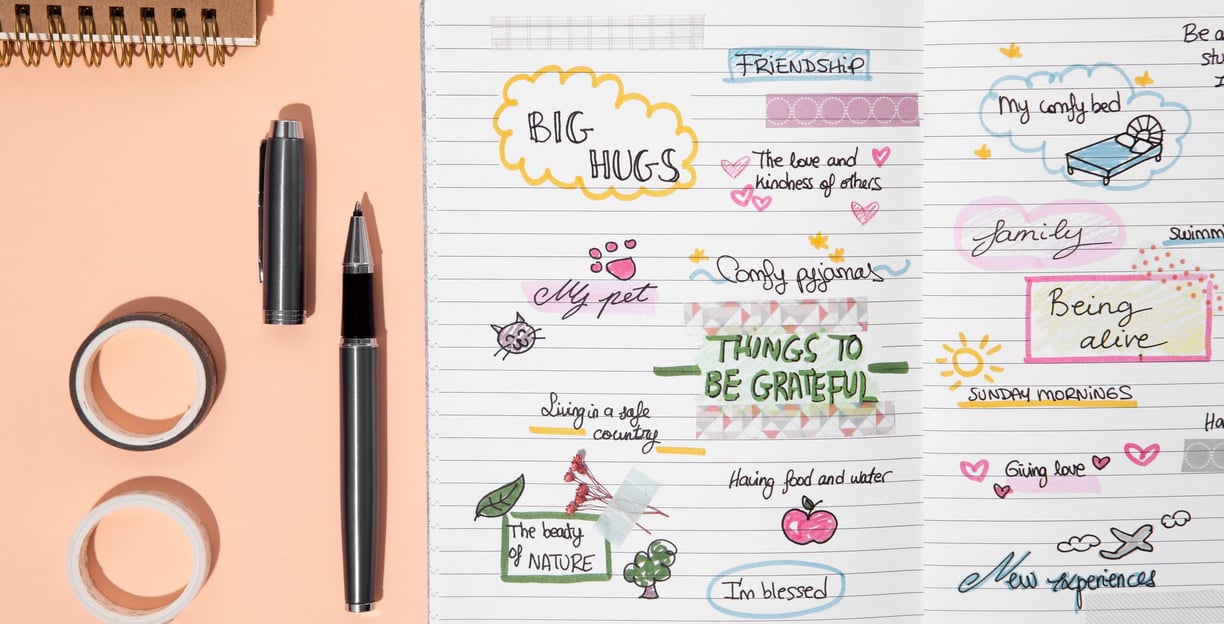 FRIENDSHIP
BIG
HUGS
The love and
kindness of others
My pet
Comfy pyjamas
THINGS TO
BE GRATEFUL
Living in a safe
country
Having food and water
The beauty
of NATURE
I'm blessed
Be a
My comfy bed
family
Being
alive
SUNDAY MORNINGS
Giving love
New experiences